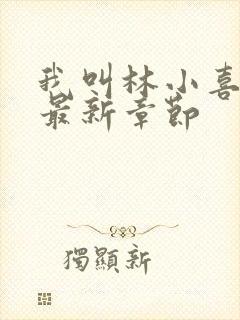 我叫林小喜
最新章节
獨顯新